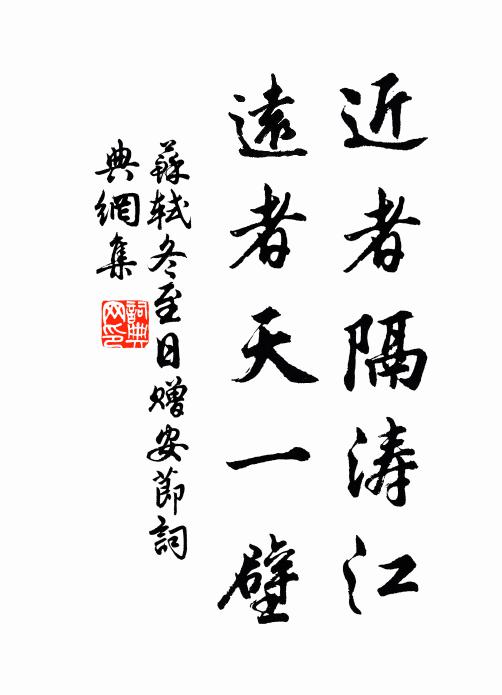 近者隔涛江
遠者天一壁
蘇軾冬至日赠安節詞
典網集
詞典
网印